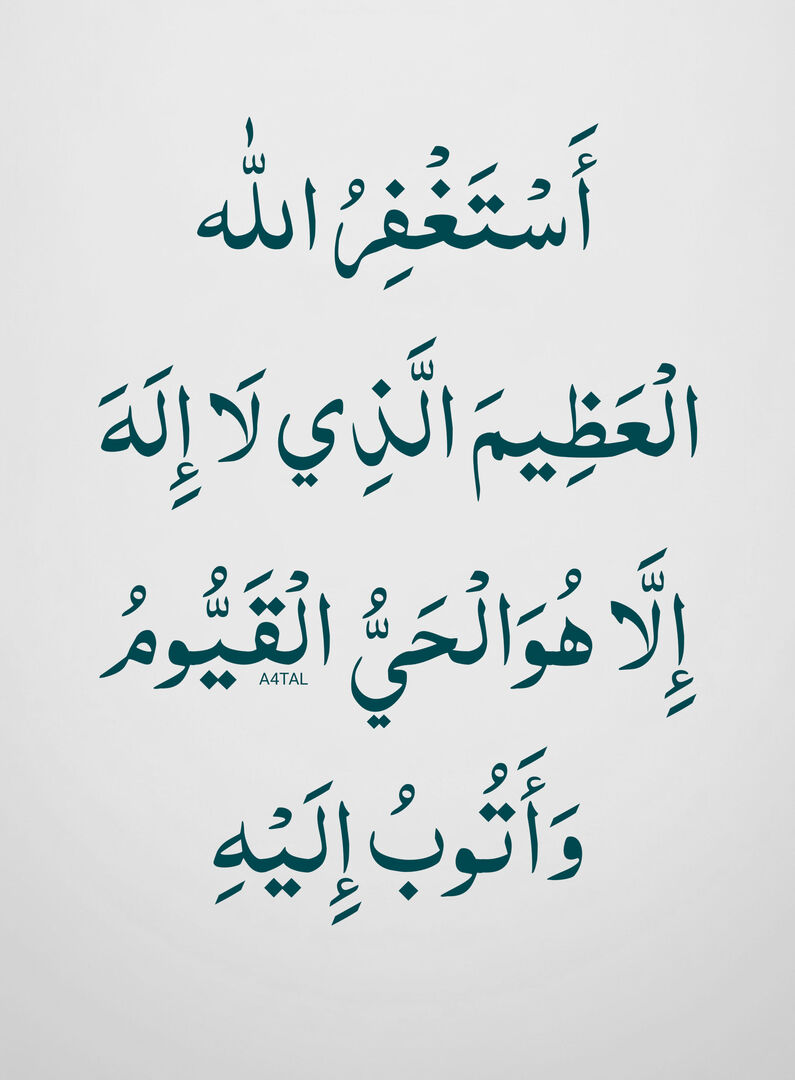 أَسْتَغْفِرُ اللّٰه
الْعَظِيمَ الَّذِي لَا إِلَهَ
إِلَّا هُوَ الْحَيُّ الْقَيُّومُ
A4TAL
وَأَتُوبُ إِلَيْهِ